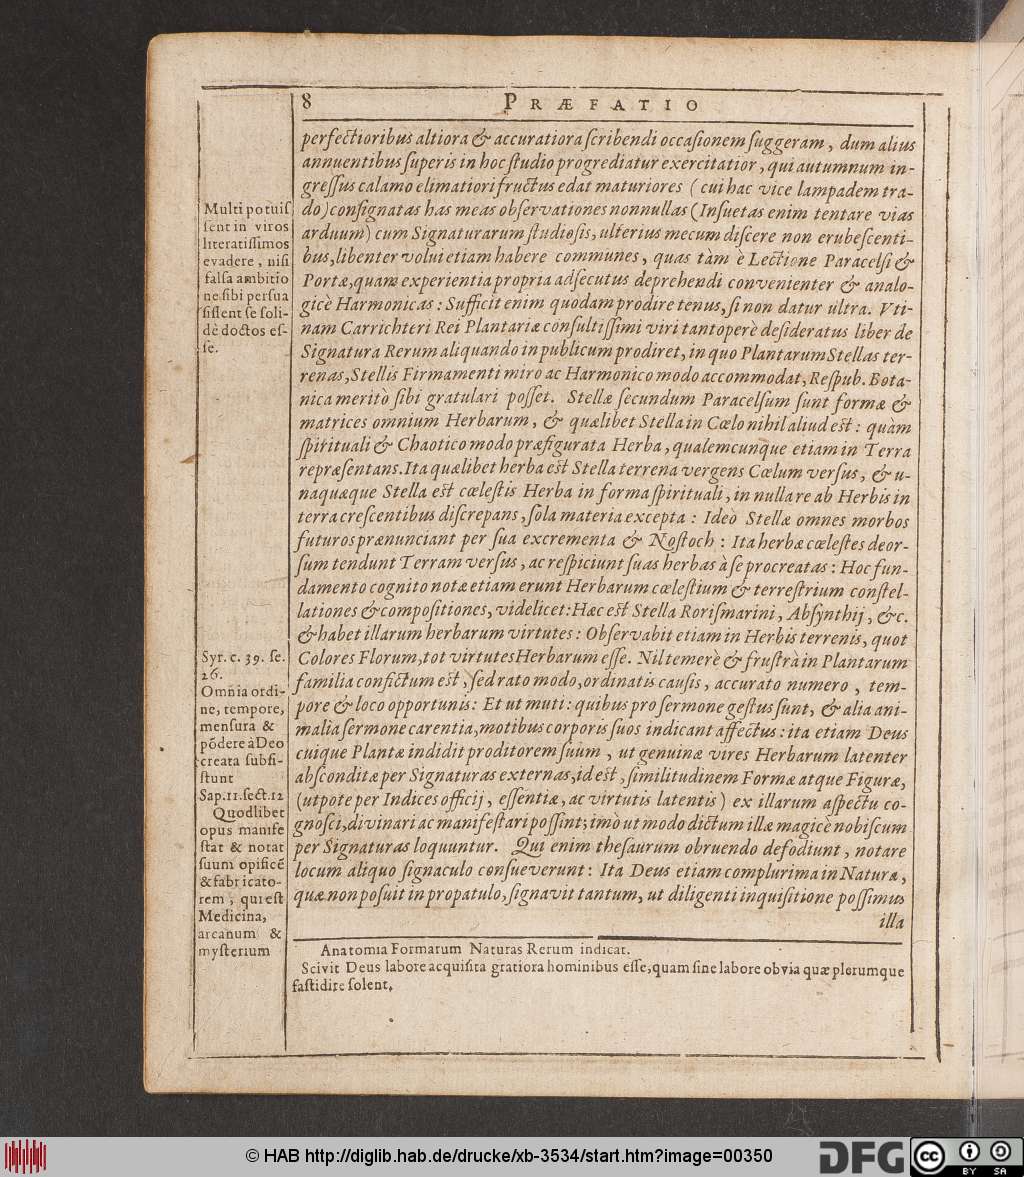 8 PRÆFATIO
perfectioribus altiora & accuratiora ſcribendi occaſionem ſuggeram, dum alius
annuentibus ſuperis in hoc ſtudio progrediatur exercitatior, qui autumnum in-
greſſus calamo elimatiori fructus edat maturiores (cui hac vice lampadem tra-
do) conſignatas has meas obſervationes nonnullas (Inſuetas enim tentare vias
arduum) cum Signaturarum ſtudioſis, ulterius mecum diſcere non erubeſcenti-
bus, libenter volui etiam habere communes, quas tàm è Lectione Paracelſi &
Portæ, quam experientia propria adſecutus deprehendi convenienter & analo-
gicè Harmonicas: Sufficit enim quodam prodire tenus, ſi non datur ultra. Vti-
nam Carrichteri Rei Plantariæ conſultiſſimi viri tantoperè deſideratus liber de
Signatura Rerum aliquando in publicum prodiret, in quo Plantarum Stellas ter-
renas, Stellis Firmamenti miro ac Harmonico modo accommodat, Reſpub. Bota-
nica meritò ſibi gratulari poſſet. Stellæ ſecundum Paracelſum ſunt formæ &
matrices omnium Herbarum, & quælibet Stella in Cœlo nihil aliud eſt: quàm
ſpirituali & Chaotico modo præfigurata Herba, qualemcunque etiam in Terra
repræſentans. Ita quælibet herba eſt Stella terrena vergens Cœlum verſus, & u-
naquæque Stella eſt cœleſtis Herba in forma ſpirituali, in nulla re ab Herbis in
terra creſcentibus diſcrepans, ſola materia excepta: Ideò Stellæ omnes morbos
futuros prænunciant per ſua excrementa & Noſtoch: Ita herbæ cœleſtes deor-
ſum tendunt Terram verſus, ac reſpiciunt ſuas herbas à ſe procreatas: Hoc fun-
damento cognito notæ etiam erunt Herbarum cœleſtium & terreſtrium conſtel-
lationes & compoſitiones, videlicet: Hæc eſt Stella Roriſmarini, Abſynthij, &c.
& habet illarum herbarum virtutes: Obſervabit etiam in Herbis terrenis, quot
Colores Florum, tot virtutes Herbarum eſſe. Nil temerè & fruſtrà in Plantarum
familia confictum eſt, ſed rato modo, ordinatis cauſis, accurato numero, tem-
pore & loco opportunis: Et ut muti: quibus pro ſermone geſtus ſunt, & alia ani-
malia ſermone carentia, motibus corporis ſuos indicant affectus: ita etiam Deus
cuique Plantæ indidit proditorem ſuum, ut genuinæ vires Herbarum latenter
abſconditæ per Signaturas externas, id eſt, ſimilitudinem Formæ atque Figuræ,
(utpote per Indices officij, eſſentiæ, ac virtutis latentis) ex illarum aſpectu co-
gnoſci, divinari ac manifeſtari poſſint; imò ut modo dictum illæ magicè nobiſcum
per Signaturas loquuntur. Qui enim theſaurum obruendo defodiunt, notare
locum aliquo ſignaculo conſueverunt: Ita Deus etiam complurima in Naturæ,
quæ non poſuit in propatulo, ſignavit tantum, ut diligenti inquiſitione poſſimus
illa
Multi potuiſ
ſent in viros
literatiſſimos
evadere, niſi
falſa ambitio
ne ſibi perſua
ſiſſent ſe ſoli-
dè doctos eſ-
ſe.
Syr. c. 39. ſe.
26.
Omnia ordi-
ne, tempore,
menſurâ &
põdere à Deo
creata ſubſi-
ſtunt
Sap. 11. ſect. 12
Quodlibet
opus manife
ſtat & notat
ſuum opificẽ
& fabricato-
rem, qui eſt
Medicina,
arcanum &
myſterium
Anatomia Formarum Naturas Rerum indicat.
Scivit Deus labore acquiſita gratiora hominibus eſſe, quam ſine labore obvia quæ plerumque
faſtidire ſolent.
© HAB http://diglib.hab.de/drucke/xb-3534/start.htm?image=00350
DFG
cc BY SA